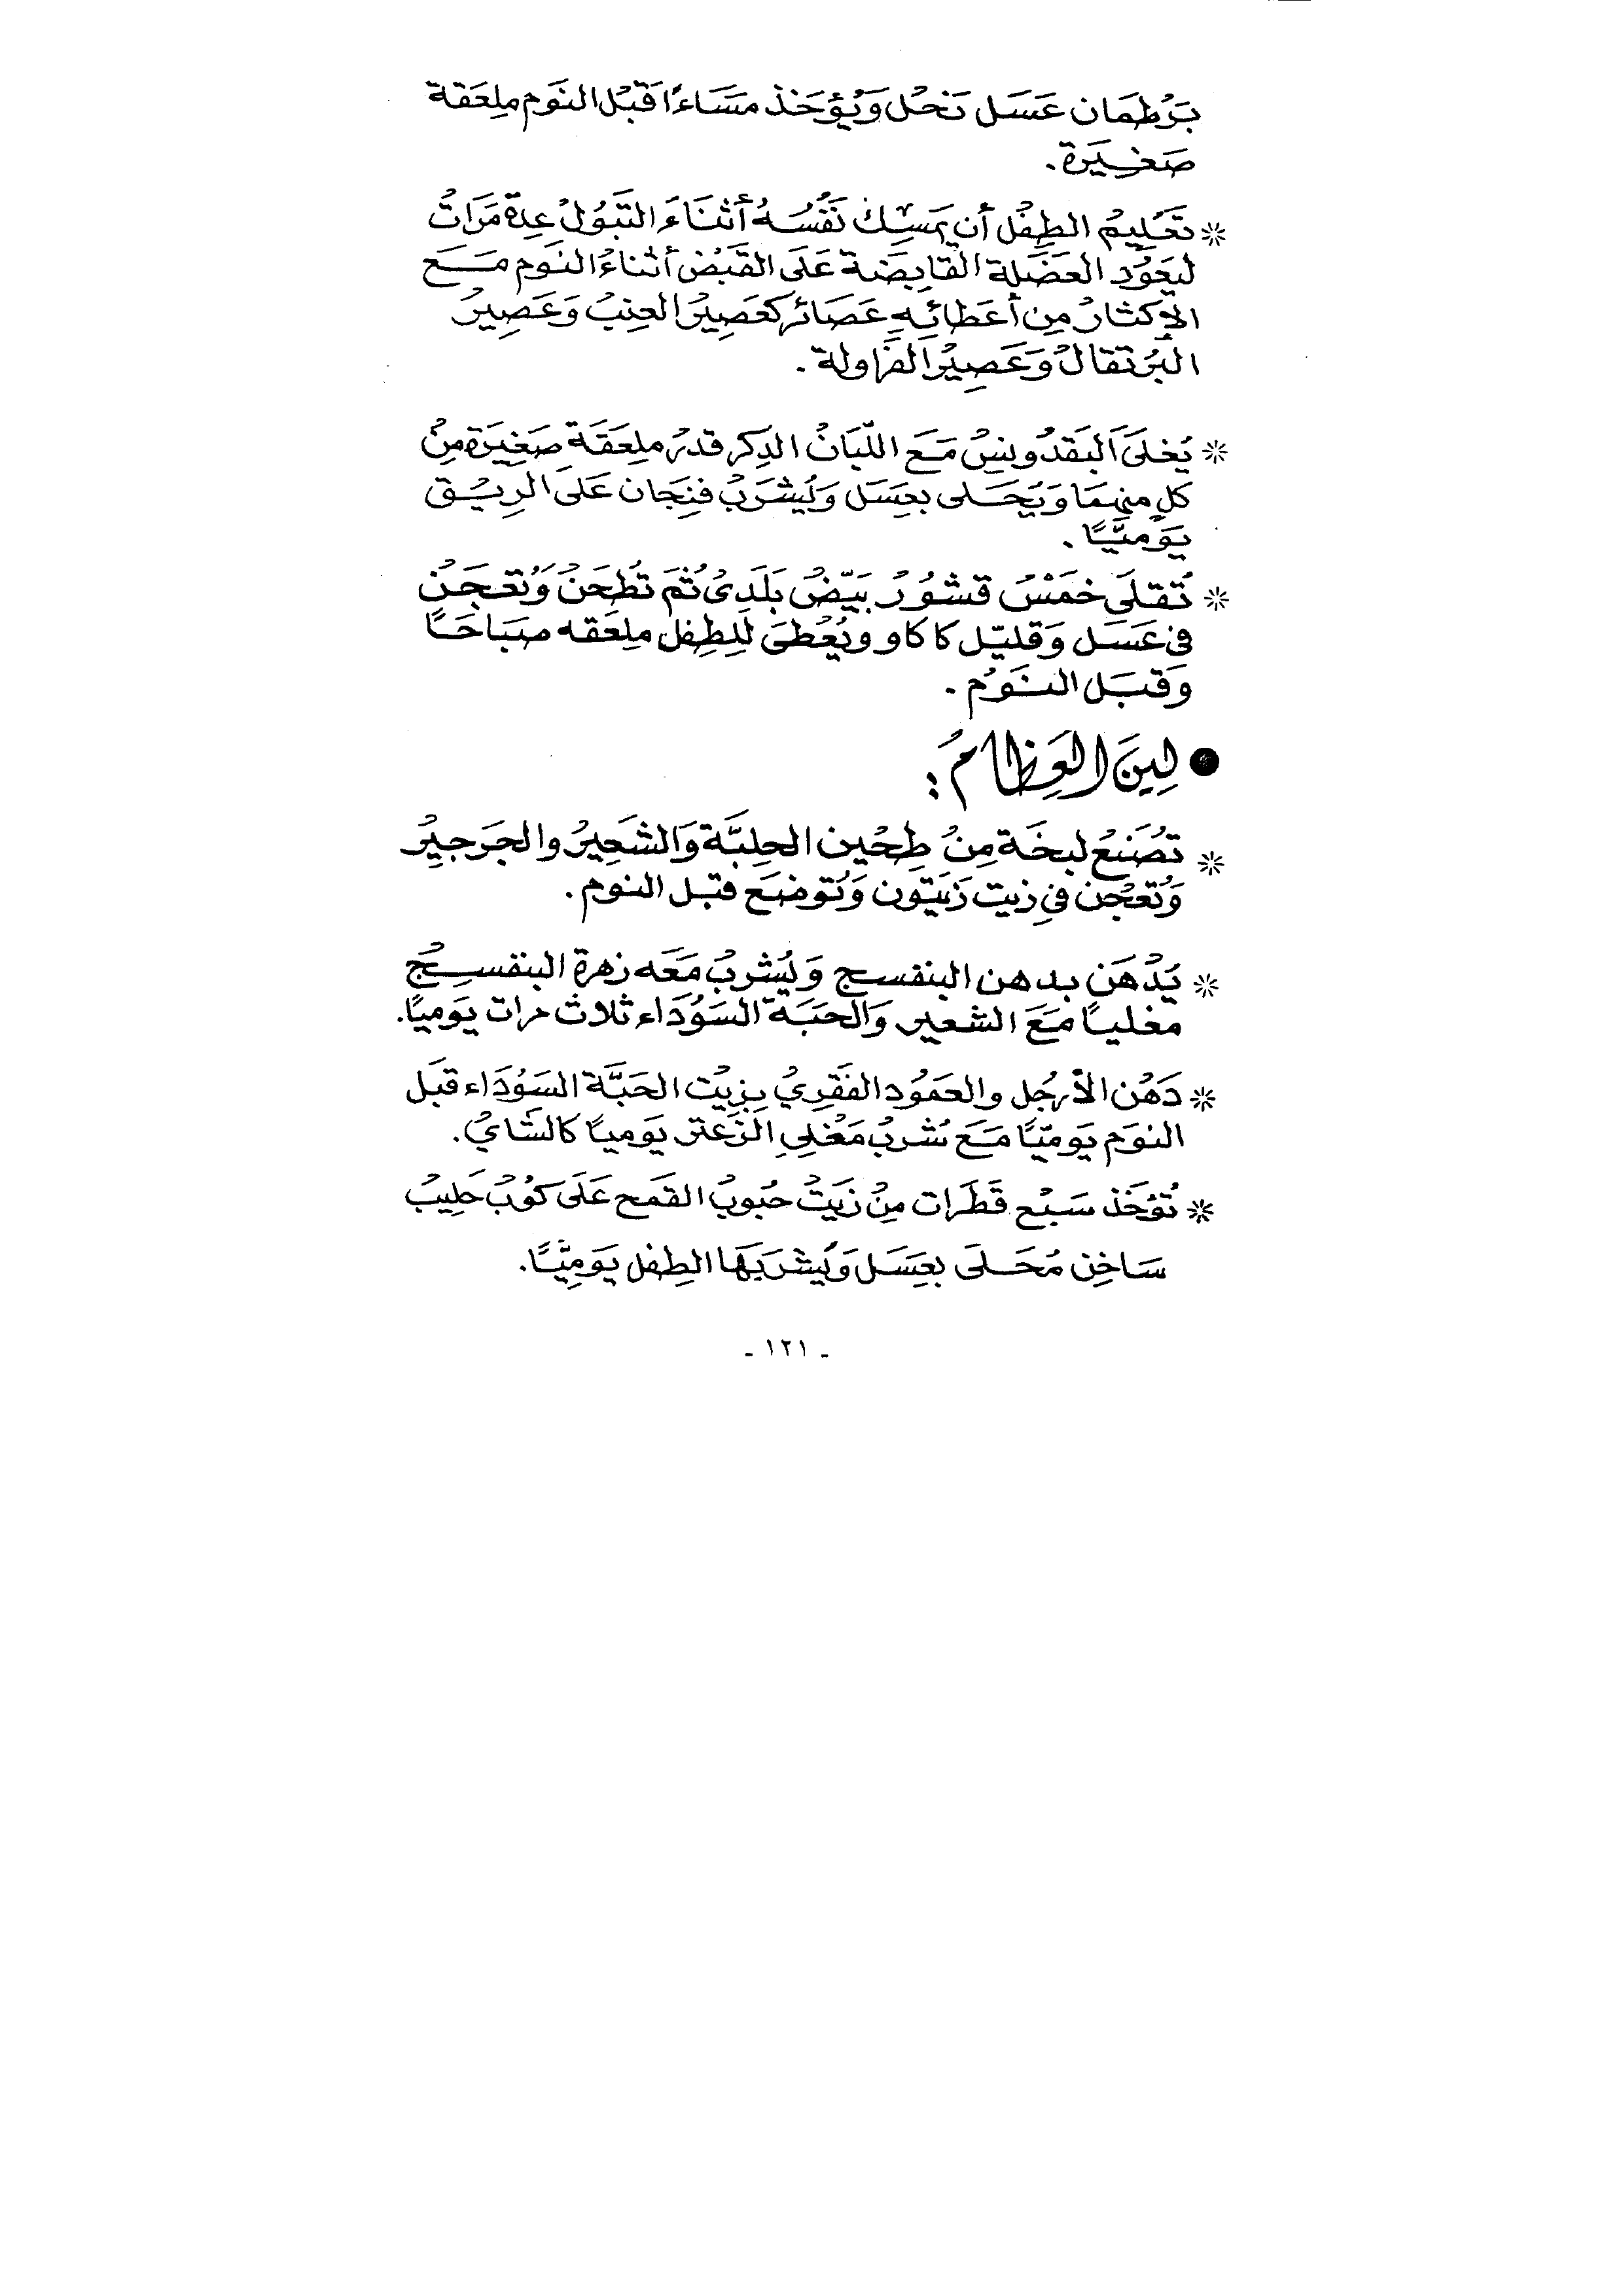 بَرْطمَان عَسَل نَحْل وَيُؤخَذ مسَاءً اقَبْل النَوم ملِعَقة
صَغِيَرة.
* تَعَليِمُ الطِفْل أن يمَسِكْ نَفْسُهُ أثنَاءَ التَبَولْ عِدة مَرَاتْ
ليَعَوُد العَضَلة القابِضَة عَلَى القَبْض أثناءْ النَوم مَع
الإكثارْ مِن أعَطائهِ عَصَائر كعَصِيرْ العِنبْ وَعَصِيرْ
البُرتقالْ وَعَصِيرْ الفرَاولة.
* يُغلىَ البَقدُونسْ مَعَ اللّبَانْ الدِكر قدرْ ملِعَقَة صَغِيَرة مِنْ
كلِ منهِمَا وَيَحَلى بعسَل وَيُشَربْ فنِجَان عَلىَ الرِيْق
يَوَميًّا.
* تُقلىَ خمَسْ قشُورْ بَيّضْ بَلَدِىْ ثُمَ تُطَحَنْ وَتُعجَنْ
فى عَسَل وَقليّل كاكاو ويُعْطىَ للِطِفل ملِعَقه صبَاحًا
وَقبَل النَوْم.
● لِينَ العِظَامْ :
* تصُنَعْ لبخَة مِنْ طِحْين الحلِبَّة وَالشَعِيرْ والجَرجيِرْ
وَتُعجْن فيِ زيت زَيَتون وَتُوضَع قبل النوم.
* يَدْهَن بدهن البنفسج وَيُشربْ مَعَه زهرة البنفسِجْ
مغلياً مَعَ الشعير وَالحَبَة السَوُدَاء ثلاث مرات يَوميًا.
* دَهْن الأرجُل والعَمَوُد الفَقَرِيْ بزيْت الحَبَّة السَوُدَاء قبَل
النوَم يَوميّا مَعَ شربْ مَغْلىِ الزَعتر يَومياً كالشَايْ.
* تُؤخَذ سَبْع قَطَرات مِنْ زَيَتْ حبُوبْ القمَح عَلىَ كوُبْ حَليِبْ
سَاخِن مُحَلىَ بعِسَل وَيُشربَهَا الطِفل يَومِيًّا.
- ١٢١ -